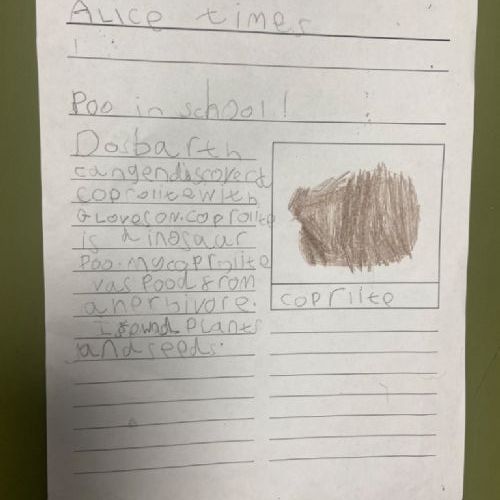 Alice times
Poo in school!
Dosbarth
cangen discoverd
coprolite with
Gloves on. coprolite
is dinosaur
Poo. my coprolite
vas Pood from
a herbivore.
I found Plants
and seeds.
copriite